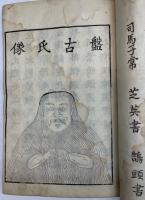 司馬子常　芝英書　鵠頭書
盤古氏像